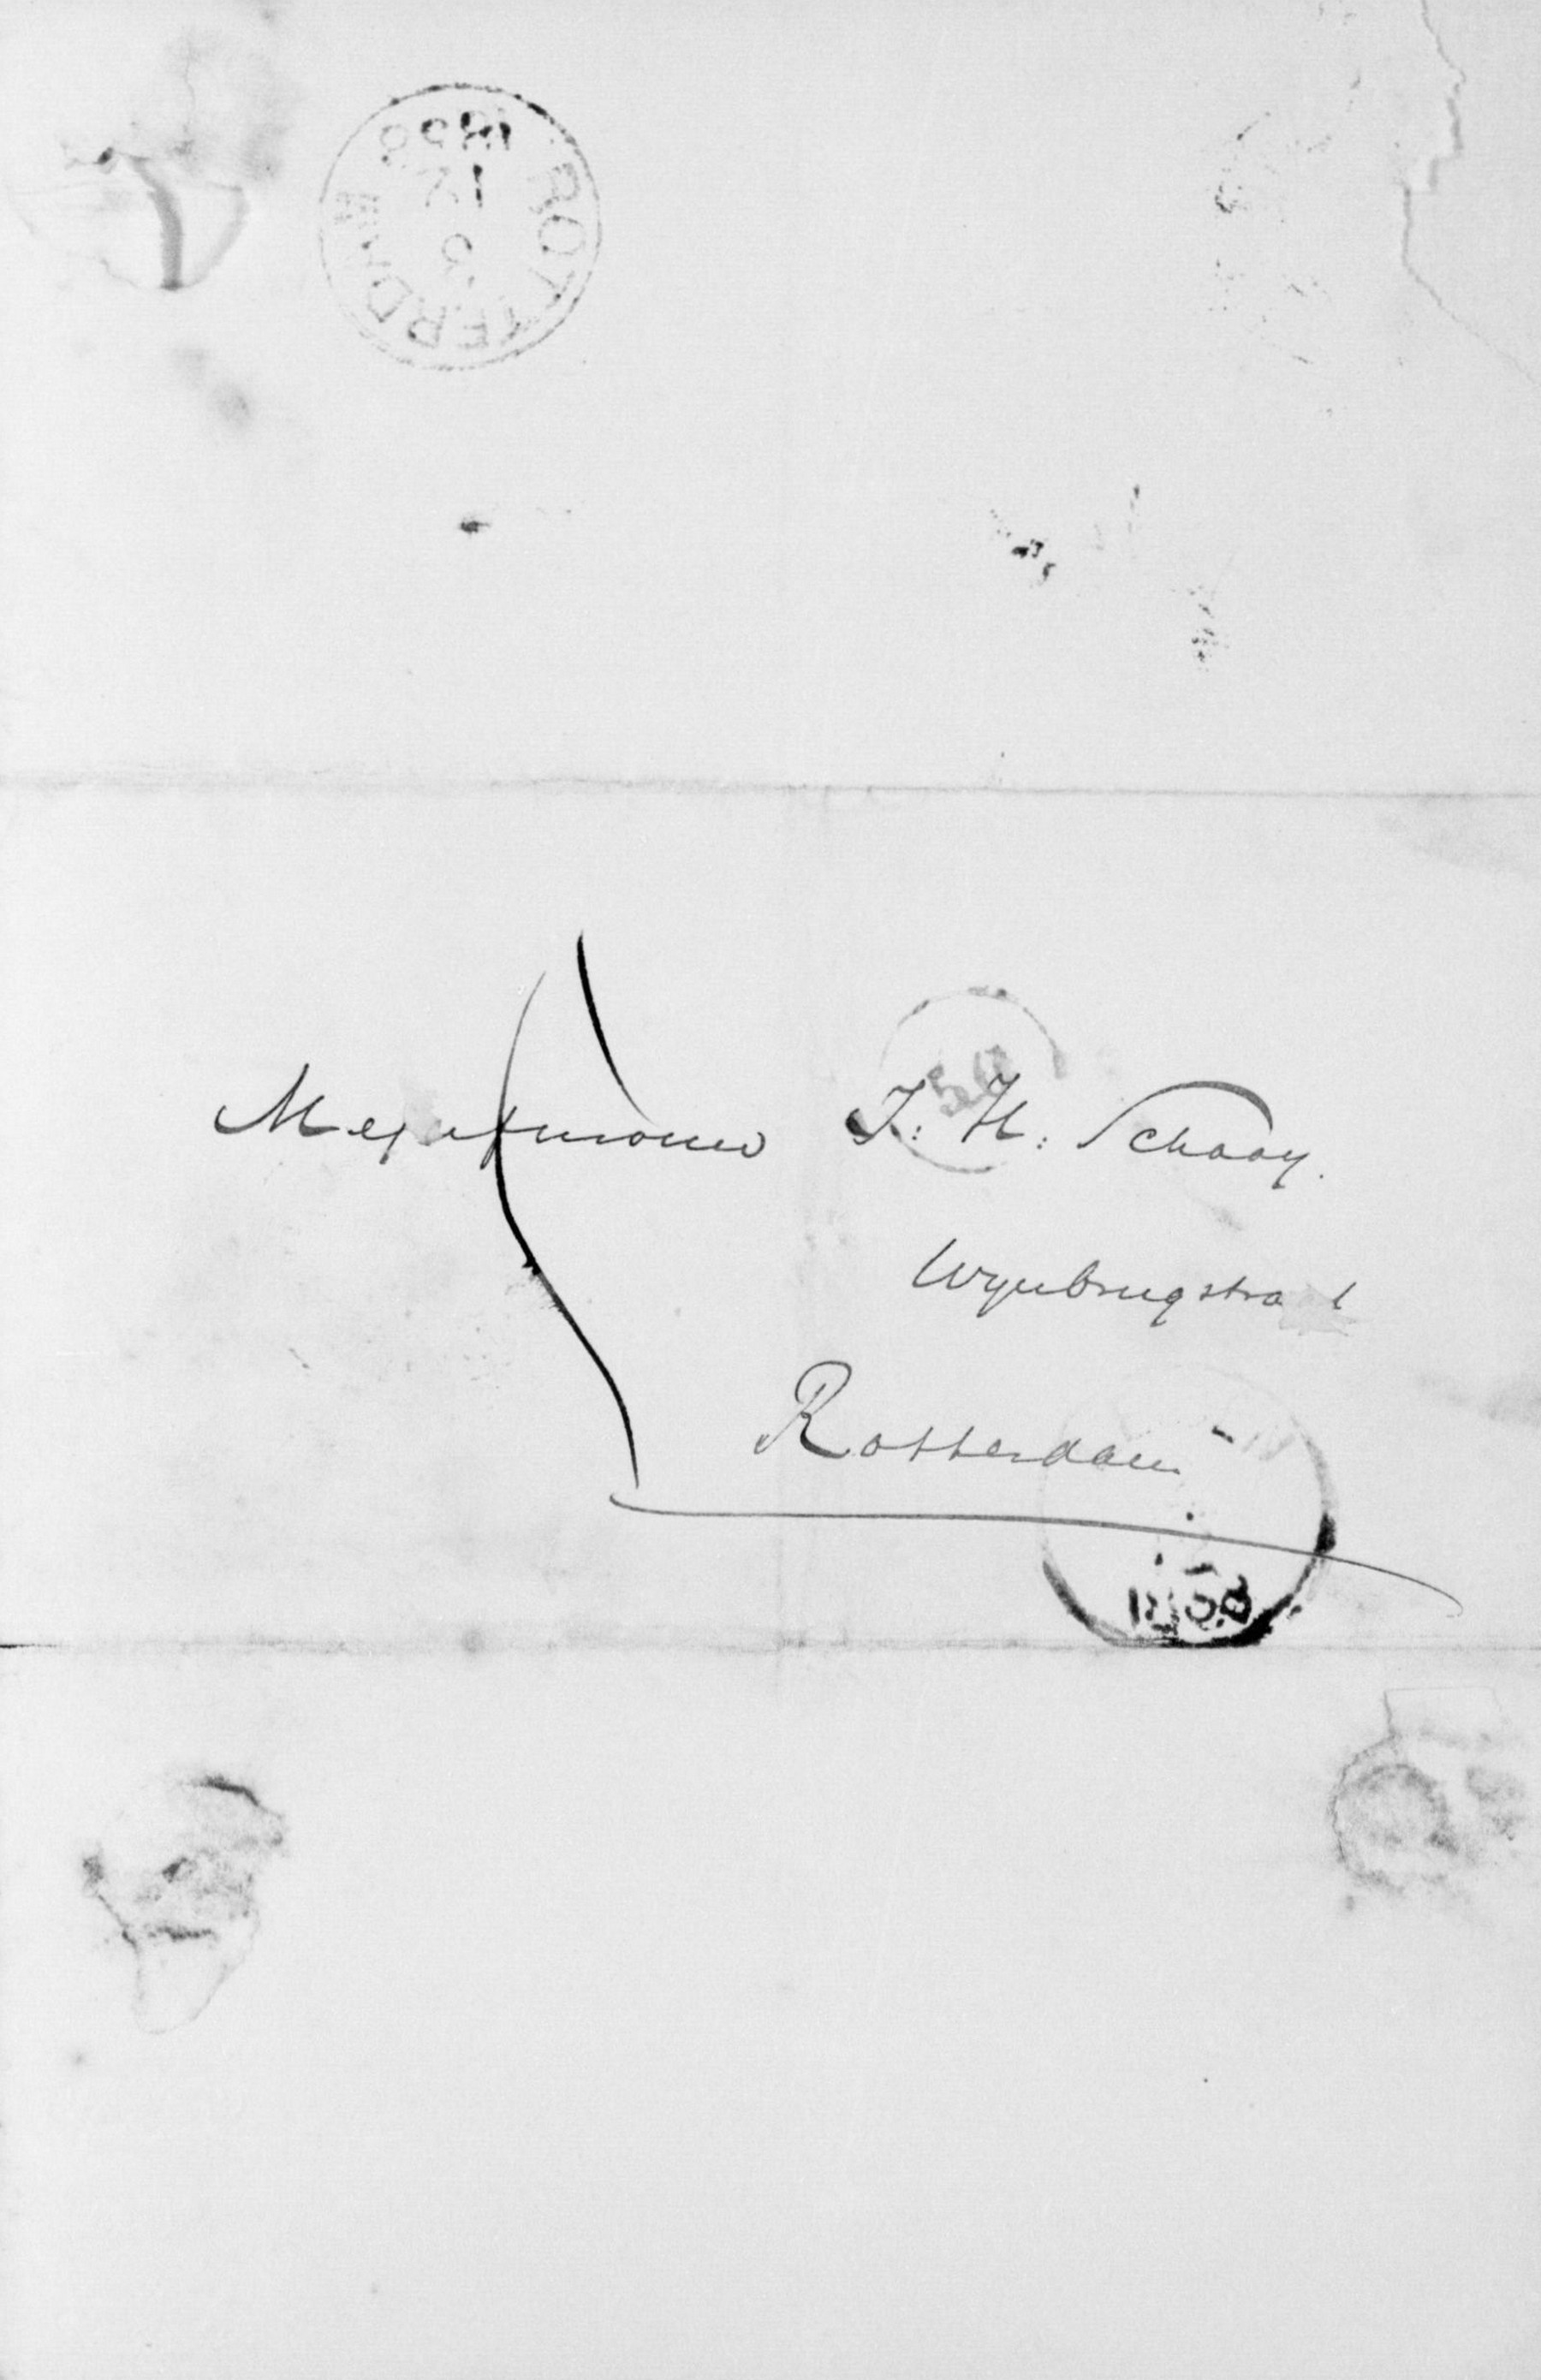 ROTTERDAM
12
Mejufvrouw J: H: Schaay.
Wynbrugstraat
Rotterdam
1858